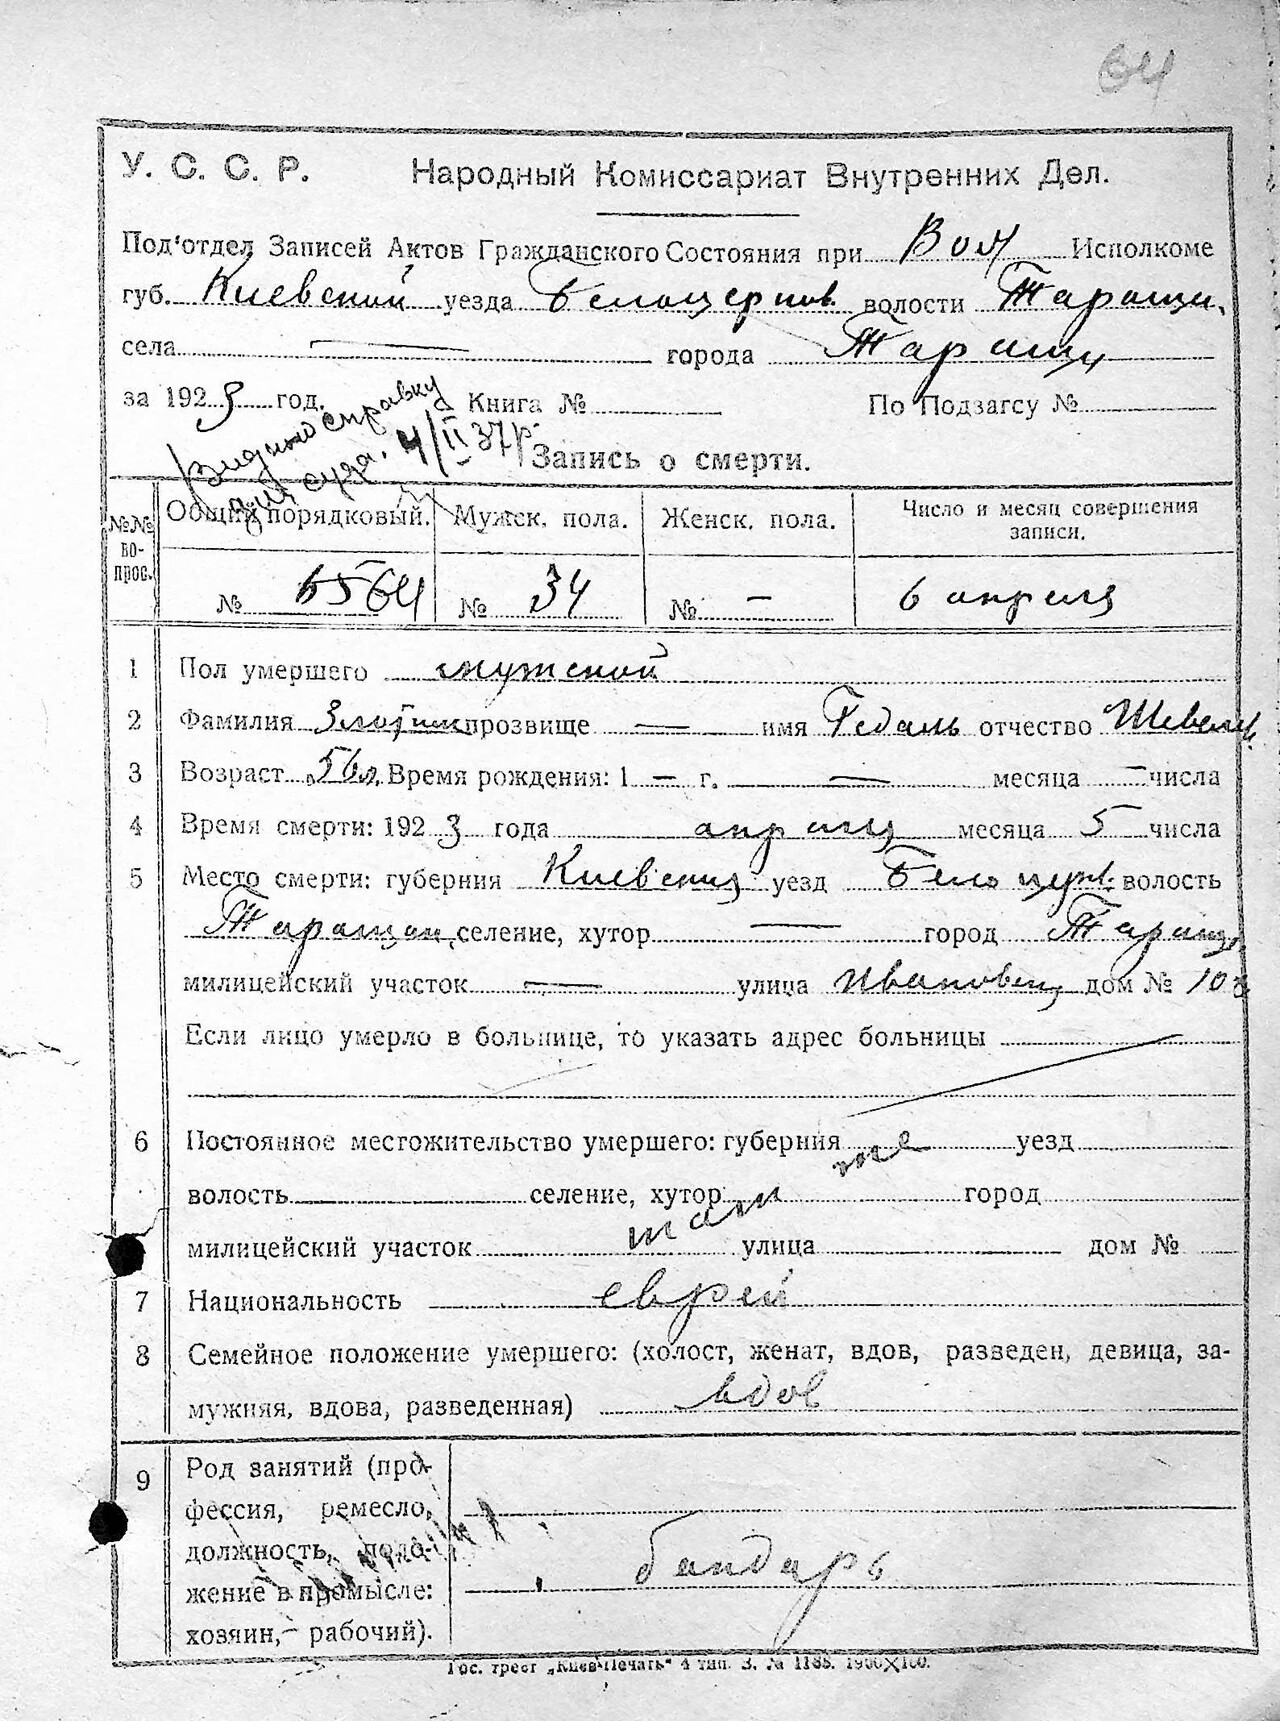 64
У. С. С. Р. Народный Комиссариат Внутренних Дел.
Под'отдел Записей Актов Гражданского Состояния при Вол Исполкоме
губ. Киевской уезда Белоцерков. волости Таращи.
села — города Таращи
за 1923 год. Книга № По Подзагсу №
Видано справку
для суда. 4/II 37р.
Запись о смерти.
№№ во- прос. Общий порядковый. Мужск. пола. Женск. пола. Число и месяц совершения записи.
№ 64 № 34 № — 6 апреля
1 Пол умершего мужской
2 Фамилия прозвище — имя Гедаль отчество Шевелев.
3 Возраст 56 л. Время рождения: 1 — г. — месяца — числа
4 Время смерти: 1923 года апреля месяца 5 числа
5 Место смерти: губерния Киевская уезд Белоцерк. волость
Таращан. селение, хутор — город Тараща
милицейский участок — улица дом №
Если лицо умерло в больнице, то указать адрес больницы
6 Постоянное местожительство умершего: губерния же уезд
волость селение, хутор город
милицейский участок там улица дом №
7 Национальность еврей
8 Семейное положение умершего: (холост, женат, вдов, разведен, девица, за-
мужняя, вдова, разведенная) вдов
9 Род занятий (про-
фессия, ремесло,
должность, поло-
жение в промысле: бандарь
хозяин,– рабочий).
Гос. трест „Киев-Печать“ 4 тип. З. № 1188. 1900×100.